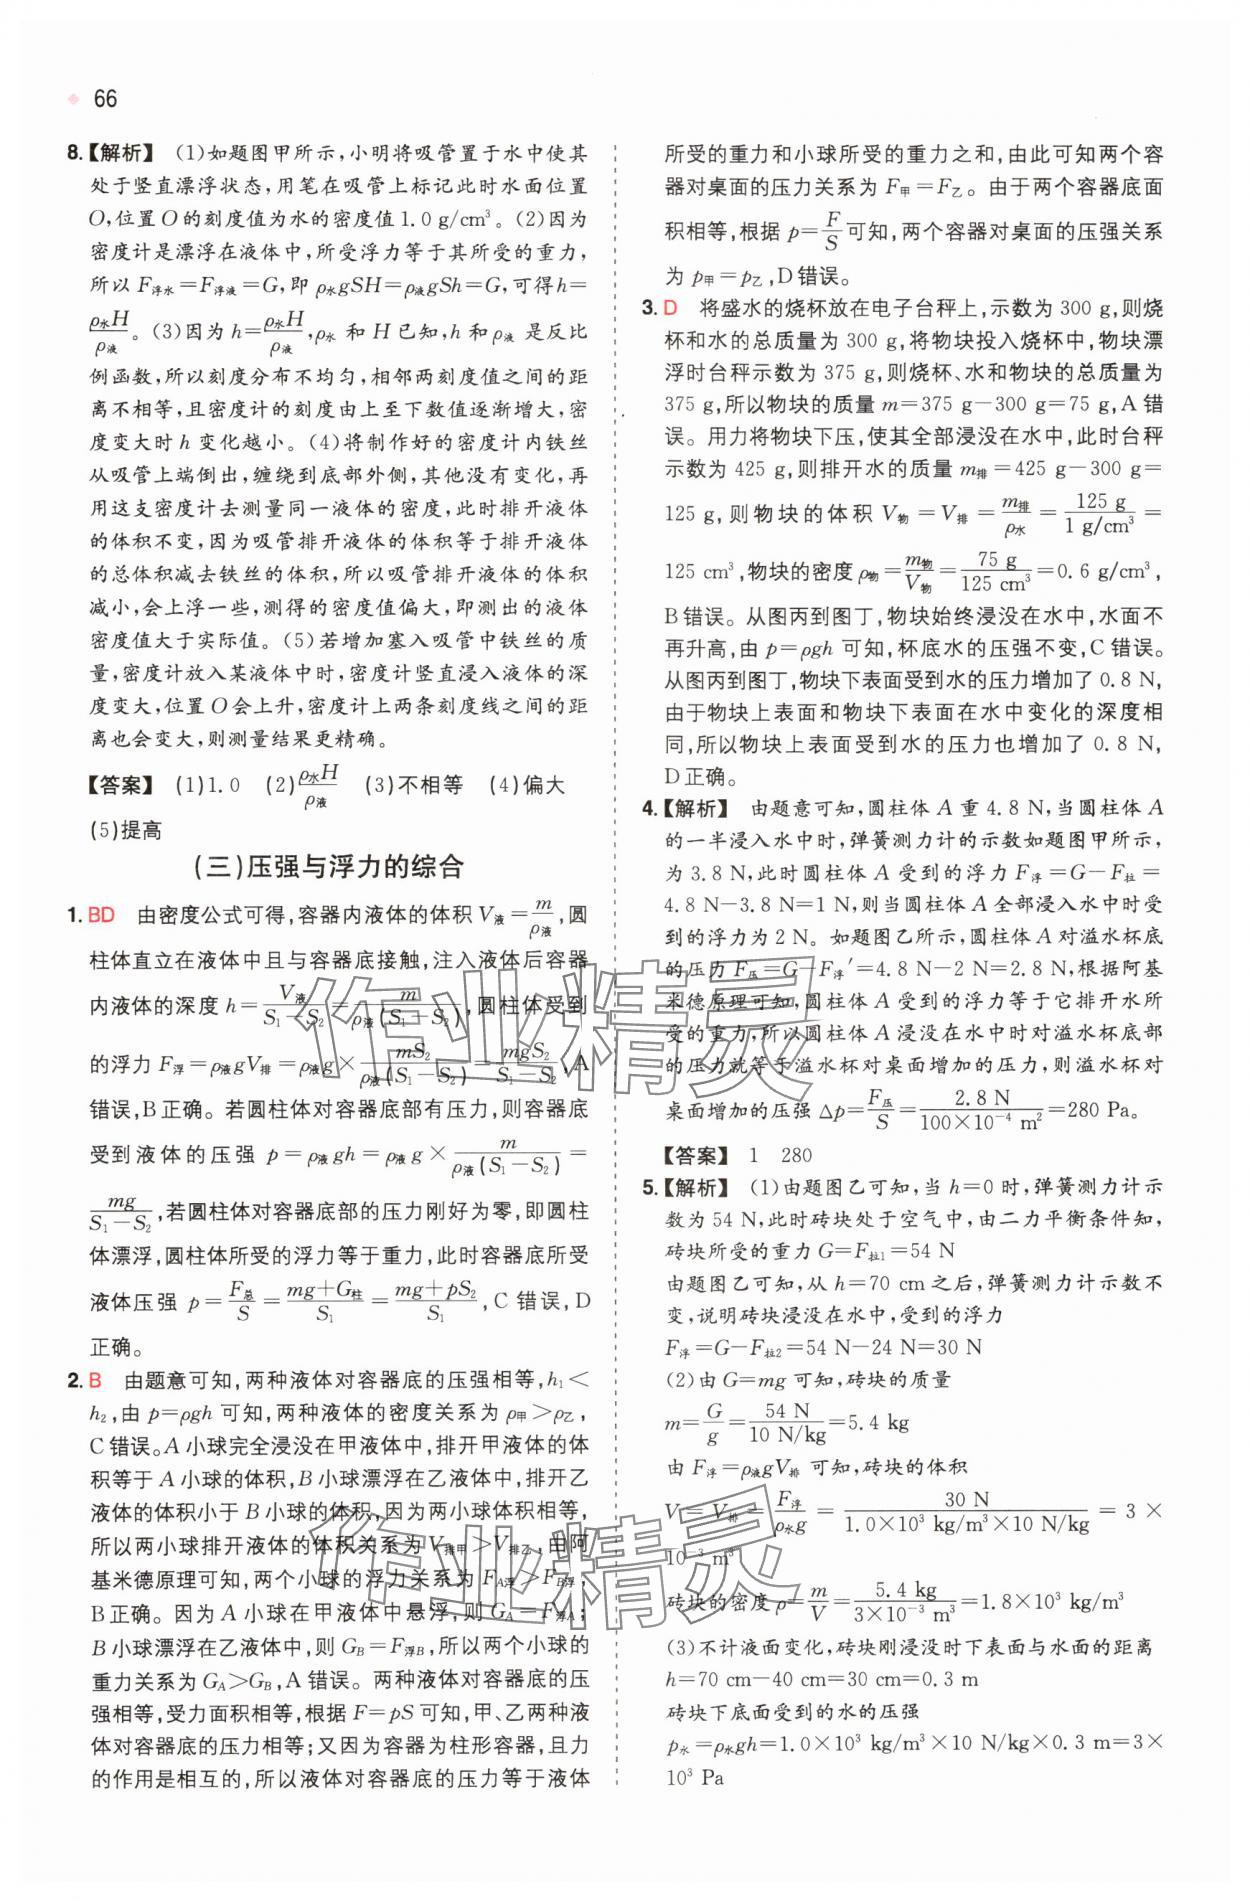 66
8.【解析】 (1)如题图甲所示,小明将吸管置于水中使其
处于竖直漂浮状态,用笔在吸管上标记此时水面位置
O,位置 O 的刻度值为水的密度值 1.0 g/cm³。(2)因为
密度计是漂浮在液体中,所受浮力等于其所受的重力,
所以 F浮水=F浮液=G,即 ρ水gSH=ρ液gSh=G,可得 h=
ρ水H/ρ液。(3)因为 h=ρ水H/ρ液,ρ水 和 H 已知,h 和 ρ液 是反比
例函数,所以刻度分布不均匀,相邻两刻度值之间的距
离不相等,且密度计的刻度由上至下数值逐渐增大,密
度变大时 h 变化越小。(4)将制作好的密度计内铁丝
从吸管上端倒出,缠绕到底部外侧,其他没有变化,再
用这支密度计去测量同一液体的密度,此时排开液体
的体积不变,因为吸管排开液体的体积等于排开液体
的总体积减去铁丝的体积,所以吸管排开液体的体积
减小,会上浮一些,测得的密度值偏大,即测出的液体
密度值大于实际值。(5)若增加塞入吸管中铁丝的质
量,密度计放入某液体中时,密度计竖直浸入液体的深
度变大,位置 O 会上升,密度计上两条刻度线之间的距
离也会变大,则测量结果更精确。
【答案】 (1)1.0 (2)ρ水H/ρ液 (3)不相等 (4)偏大
(5)提高
(三)压强与浮力的综合
1. BD 由密度公式可得,容器内液体的体积 V液=m/ρ液,圆
柱体直立在液体中且与容器底接触,注入液体后容器
内液体的深度 h=V液/(S₁-S₂)=m/[ρ液(S₁-S₂)],圆柱体受到
的浮力 F浮=ρ液gV排=ρ液g×mS₂/[ρ液(S₁-S₂)]=mgS₂/(S₁-S₂),A
错误,B正确。若圆柱体对容器底部有压力,则容器底
受到液体的压强 p=ρ液gh=ρ液g×m/[ρ液(S₁-S₂)]=
mg/(S₁-S₂),若圆柱体对容器底部的压力刚好为零,即圆柱
体漂浮,圆柱体所受的浮力等于重力,此时容器底所受
液体压强 p=F总/S=(mg+G柱)/S₁=(mg+pS₂)/S₁,C错误,D
正确。
2. B 由题意可知,两种液体对容器底的压强相等,h₁<
h₂,由 p=ρgh 可知,两种液体的密度关系为 ρ甲>ρ乙,
C错误。A 小球完全浸没在甲液体中,排开甲液体的体
积等于 A 小球的体积,B 小球漂浮在乙液体中,排开乙
液体的体积小于 B 小球的体积,因为两小球体积相等,
所以两小球排开液体的体积关系为 V排甲>V排乙,由阿
基米德原理可知,两个小球的浮力关系为 FA浮>FB浮,
B正确。因为 A 小球在甲液体中悬浮,则 GA=F浮A;
B 小球漂浮在乙液体中,则 GB=F浮B,所以两个小球的
重力关系为 GA>GB,A 错误。两种液体对容器底的压
强相等,受力面积相等,根据 F=pS 可知,甲、乙两种液
体对容器底的压力相等;又因为容器为柱形容器,且力
的作用是相互的,所以液体对容器底的压力等于液体
所受的重力和小球所受的重力之和,由此可知两个容
器对桌面的压力关系为 F甲=F乙。由于两个容器底面
积相等,根据 p=F/S可知,两个容器对桌面的压强关系
为 p甲=p乙,D错误。
3. D 将盛水的烧杯放在电子台秤上,示数为 300 g,则烧
杯和水的总质量为 300 g,将物块投入烧杯中,物块漂
浮时台秤示数为 375 g,则烧杯、水和物块的总质量为
375 g,所以物块的质量 m=375 g-300 g=75 g,A 错
误。用力将物块下压,使其全部浸没在水中,此时台秤
示数为 425 g,则排开水的质量 m排=425 g-300 g=
125 g,则物块的体积 V物=V排=m排/ρ水=125 g/(1 g/cm³)=
125 cm³,物块的密度 ρ物=m物/V物=75 g/125 cm³=0.6 g/cm³,
B错误。从图丙到图丁,物块始终浸没在水中,水面不
再升高,由 p=ρgh 可知,杯底水的压强不变,C错误。
从图丙到图丁,物块下表面受到水的压力增加了 0.8 N,
由于物块上表面和物块下表面在水中变化的深度相
同,所以物块上表面受到水的压力也增加了 0.8 N,
D正确。
4.【解析】 由题意可知,圆柱体 A 重 4.8 N,当圆柱体 A
的一半浸入水中时,弹簧测力计的示数如题图甲所示,
为 3.8 N,此时圆柱体 A 受到的浮力 F浮=G-F拉=
4.8 N-3.8 N=1 N,则当圆柱体 A 全部浸入水中时受
到的浮力为 2 N。如题图乙所示,圆柱体 A 对溢水杯底
的压力 F压=G-F浮′=4.8 N-2 N=2.8 N,根据阿基
米德原理可知,圆柱体 A 受到的浮力等于它排开水所
受的重力,所以圆柱体 A 浸没在水中时对溢水杯底部
的压力就等于溢水杯对桌面增加的压力,则溢水杯对
桌面增加的压强 Δp=F压/S=2.8 N/(100×10⁻⁴ m²)=280 Pa。
【答案】 1 280
5.【解析】 (1)由题图乙可知,当 h=0 时,弹簧测力计示
数为 54 N,此时砖块处于空气中,由二力平衡条件知,
砖块所受的重力 G=F拉1=54 N
由题图乙可知,从 h=70 cm 之后,弹簧测力计示数不
变,说明砖块浸没在水中,受到的浮力
F浮=G-F拉2=54 N-24 N=30 N
(2)由 G=mg 可知,砖块的质量
m=G/g=54 N/(10 N/kg)=5.4 kg
由 F浮=ρ液gV排 可知,砖块的体积
V=V排=F浮/(ρ水g)=30 N/(1.0×10³ kg/m³×10 N/kg)=3×
10⁻³ m³
砖块的密度 ρ=m/V=5.4 kg/(3×10⁻³ m³)=1.8×10³ kg/m³
(3)不计液面变化,砖块刚浸没时下表面与水面的距离
h=70 cm-40 cm=30 cm=0.3 m
砖块下底面受到的水的压强
p水=ρ水gh=1.0×10³ kg/m³×10 N/kg×0.3 m=3×
10³ Pa
作业精灵
作业精灵